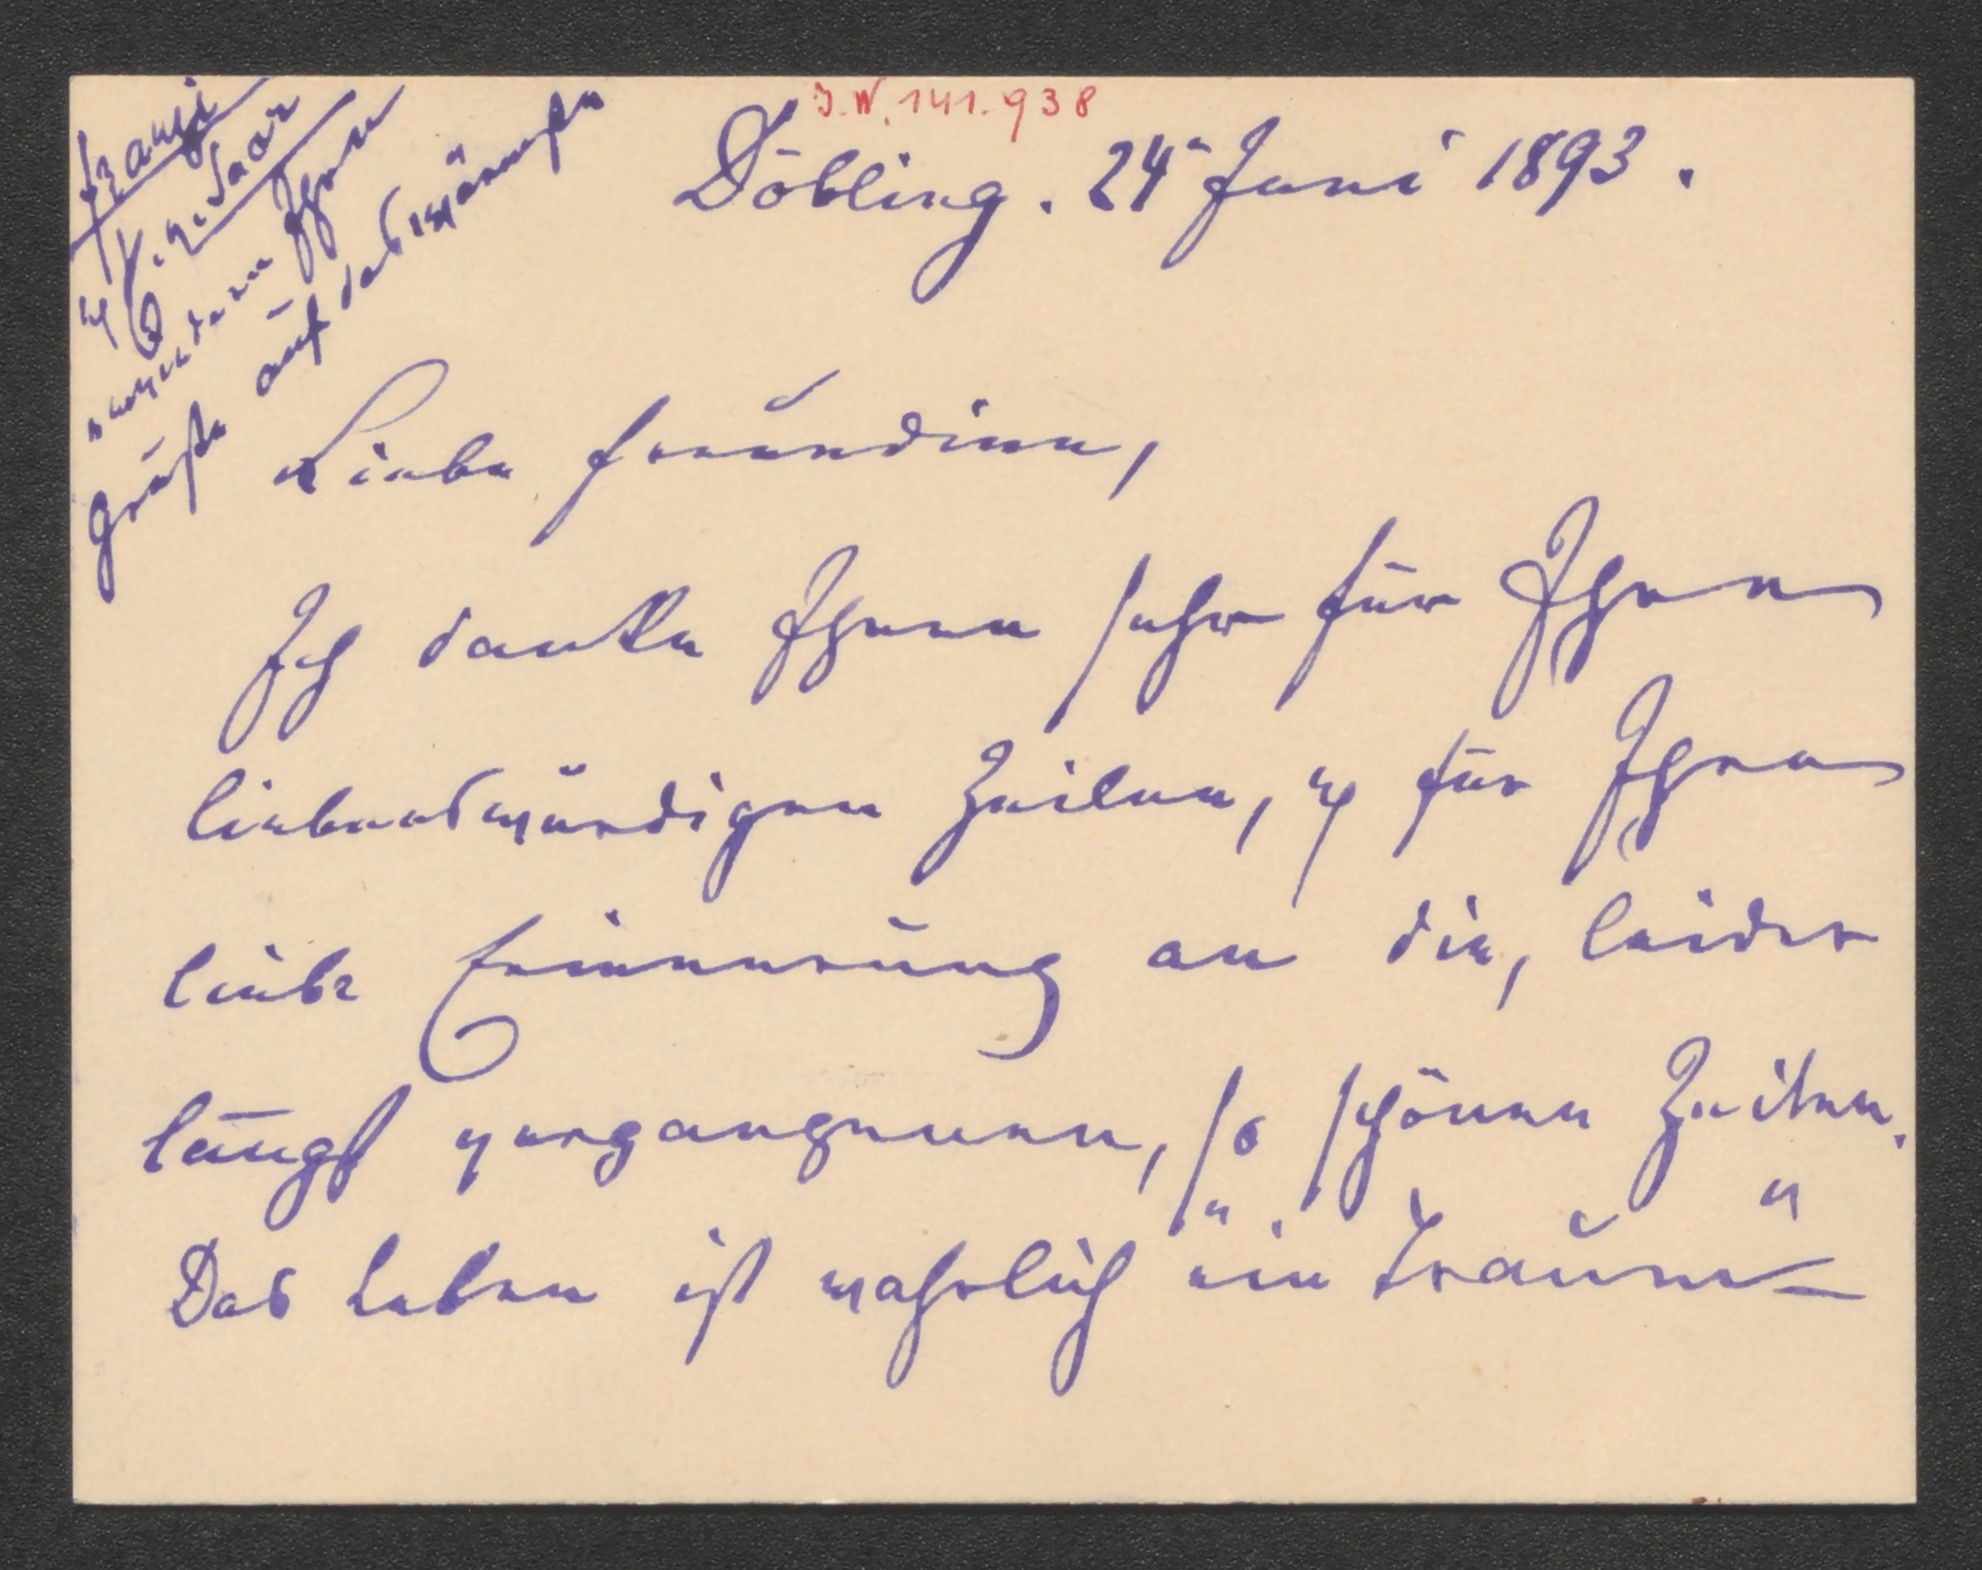 J.N. 141.938
Döbling. 24 Juni 1893.
Franzi
& F. v. Saar
senden Ihnen
Grüße auf das wärmste
Liebe Freundinn,
Ich danke Ihnen sehr für Ihre
liebenswürdigen Zeilen, & für Ihre
liebe Erinnerung an die, leider
längst vergangenen, so schönen Zeiten.
Das Leben ist wahrlich „ein Traum“ –